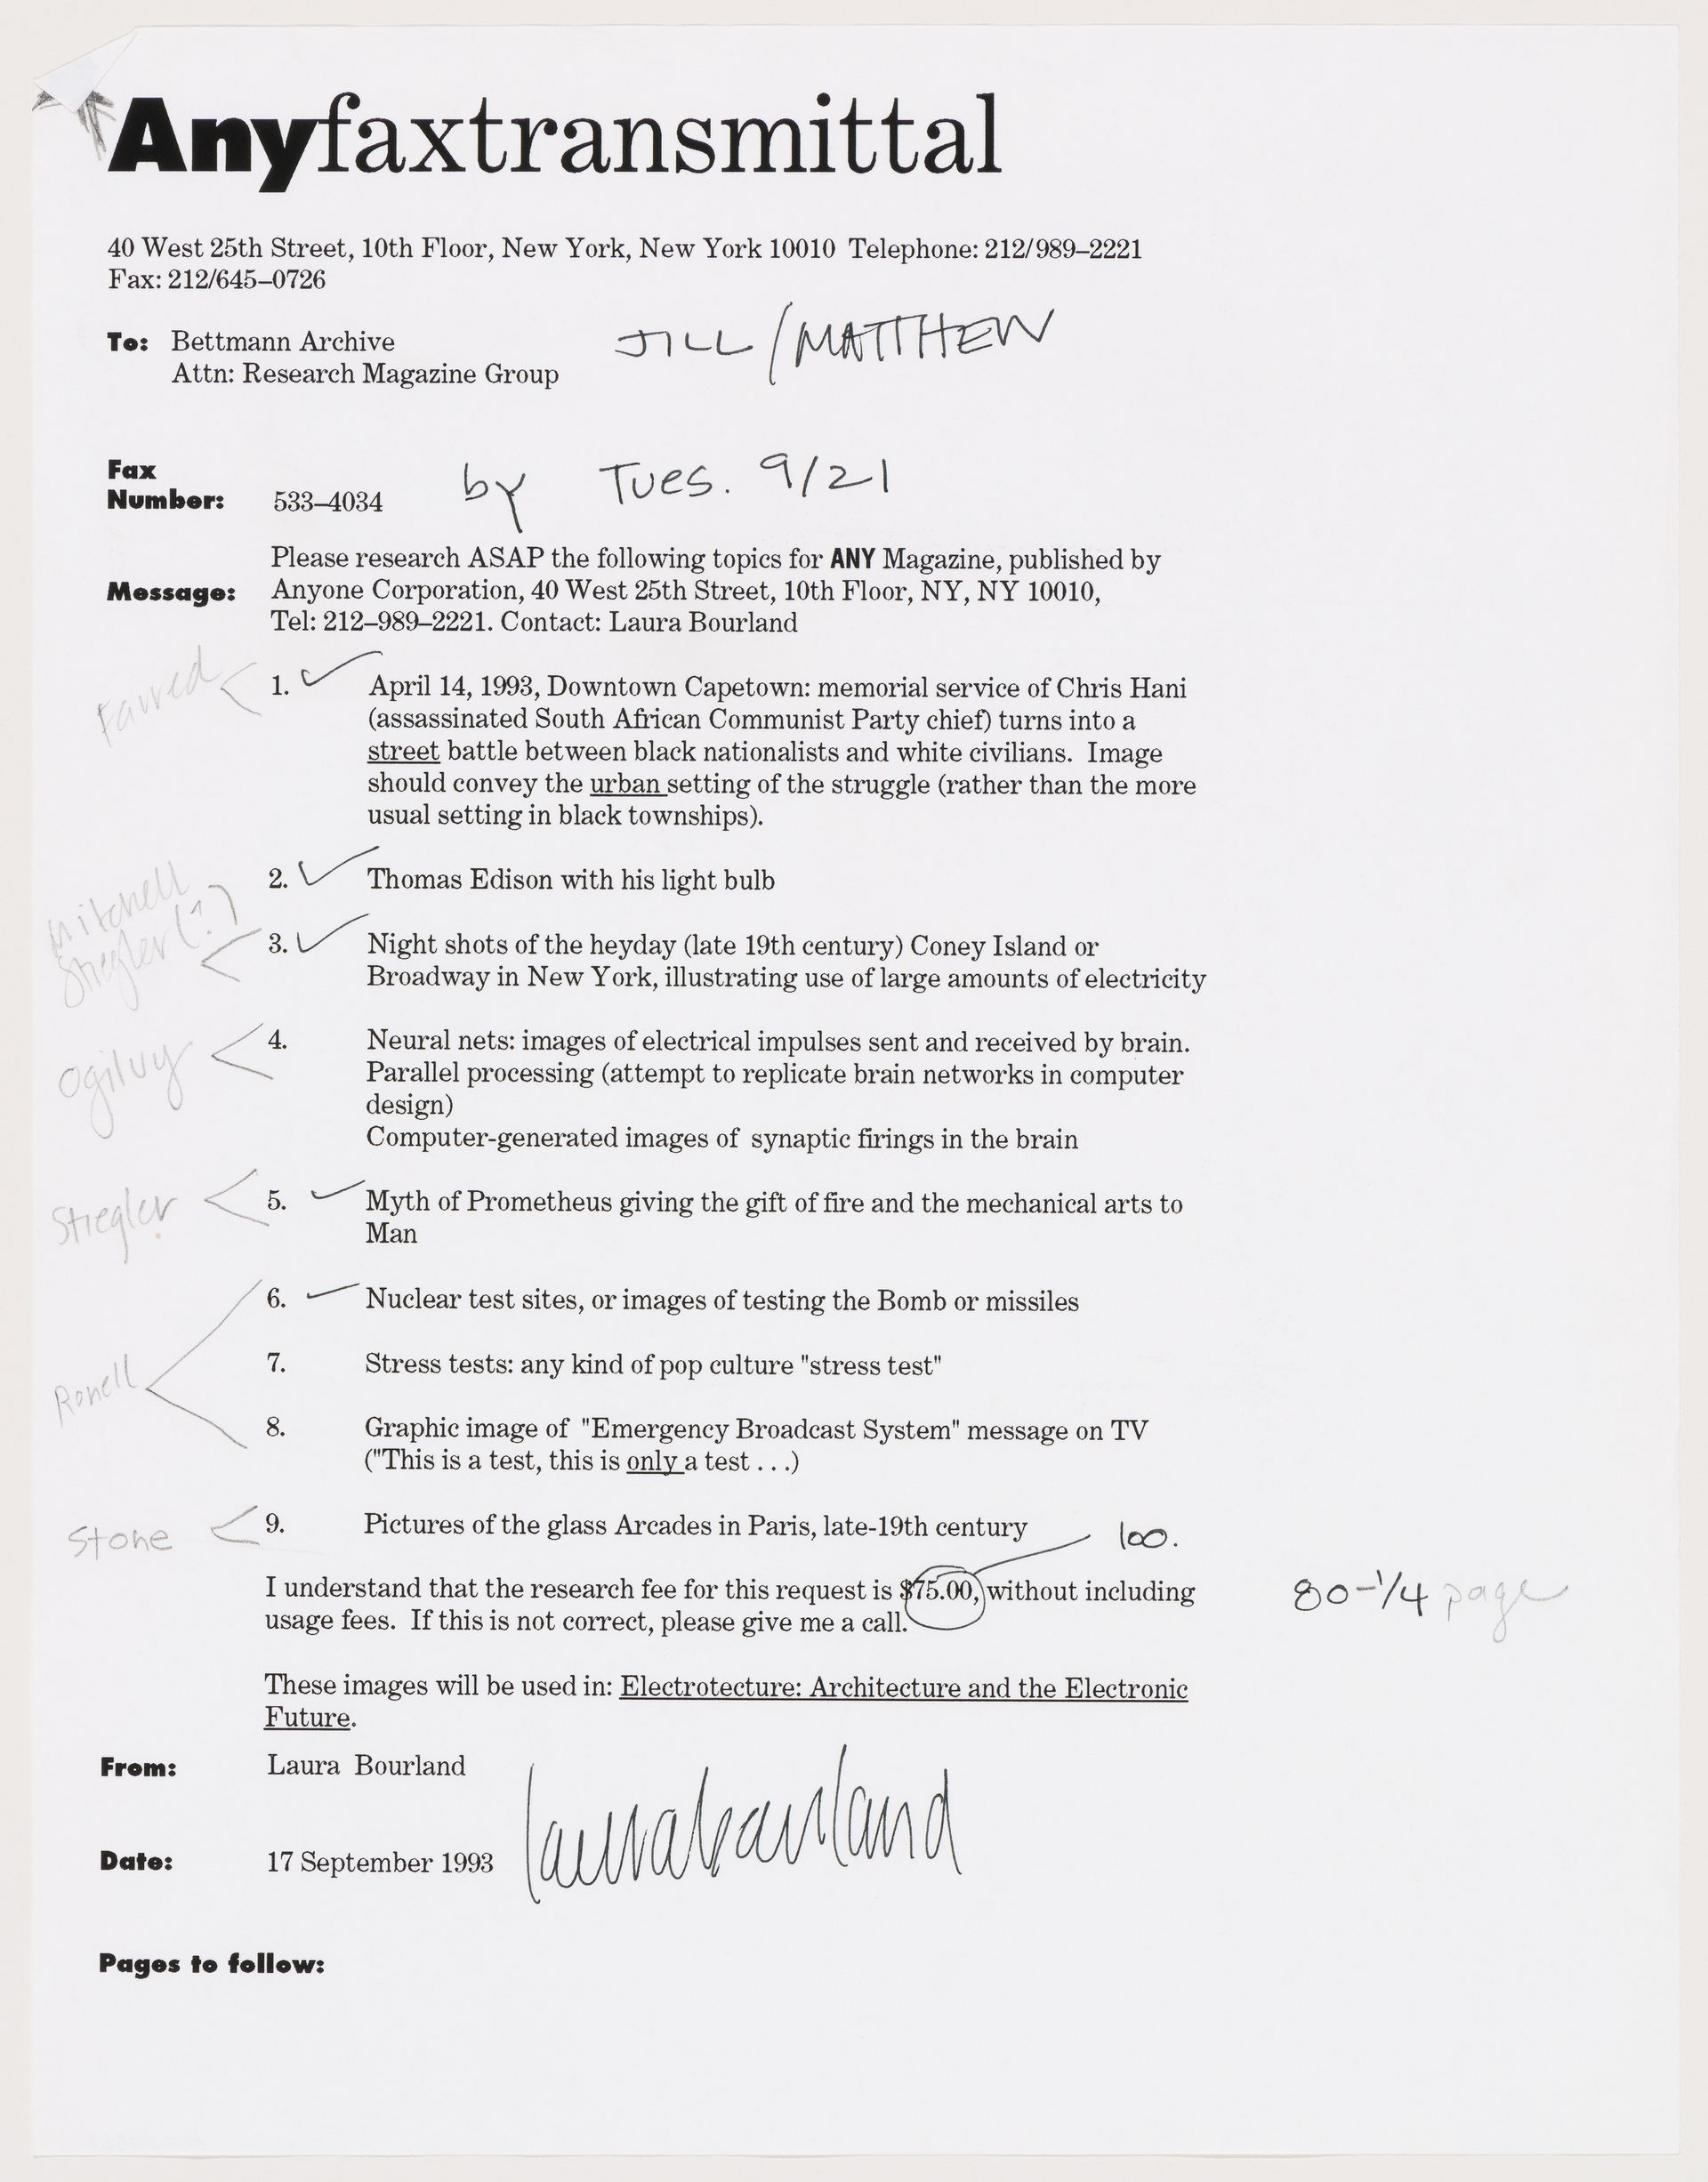 Anyfaxtransmittal
40 West 25th Street, 10th Floor, New York, New York 10010 Telephone: 212/989–2221
Fax: 212/645–0726
To: Bettmann Archive
JILL/MATTHEW
Attn: Research Magazine Group
Fax
Number: 533–4034
by Tues. 9/21
Please research ASAP the following topics for ANY Magazine, published by
Message: Anyone Corporation, 40 West 25th Street, 10th Floor, NY, NY 10010,
Tel: 212–989–2221. Contact: Laura Bourland
1. April 14, 1993, Downtown Capetown: memorial service of Chris Hani
(assassinated South African Communist Party chief) turns into a
street battle between black nationalists and white civilians. Image
should convey the urban setting of the struggle (rather than the more
usual setting in black townships).
2. Thomas Edison with his light bulb
Mitchell
Stiegler (?)
3. Night shots of the heyday (late 19th century) Coney Island or
Broadway in New York, illustrating use of large amounts of electricity
Ogilvy
4. Neural nets: images of electrical impulses sent and received by brain.
Parallel processing (attempt to replicate brain networks in computer
design)
Computer-generated images of synaptic firings in the brain
Stiegler
5. Myth of Prometheus giving the gift of fire and the mechanical arts to
Man
6. Nuclear test sites, or images of testing the Bomb or missiles
Ronell
7. Stress tests: any kind of pop culture "stress test"
8. Graphic image of "Emergency Broadcast System" message on TV
("This is a test, this is only a test . . .)
Stone
9. Pictures of the glass Arcades in Paris, late-19th century
100.
I understand that the research fee for this request is $75.00, without including
80–1/4 page
usage fees. If this is not correct, please give me a call.
These images will be used in: Electrotecture: Architecture and the Electronic
Future.
From: Laura Bourland
laurabourland
Date: 17 September 1993
Pages to follow: